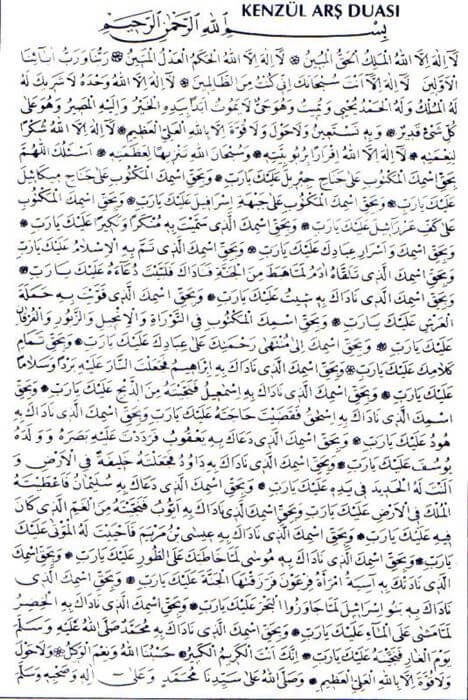 KENZÜL ARŞ DUASI
بِسْمِ اللهِ الرَّحْمٰنِ الرَّحِيمِ
لَا اِلٰهَ اِلَّا اللهُ الْمَلِكُ الْحَقُّ الْمُبِينُ ❁ لَا اِلٰهَ اِلَّا اللهُ الْحَكَمُ الْعَدْلُ الْمَتِينُ ❁ رَبُّنَا وَرَبُّ اٰبَائِنَا
الْاَوَّلِينَ لَا اِلٰهَ اِلَّا اَنْتَ سُبْحَانَكَ اِنِّي كُنْتُ مِنَ الظَّالِمِينَ ❁ لَا اِلٰهَ اِلَّا اللهُ وَحْدَهُ لَا شَرِيكَ لَهُ
لَهُ الْمُلْكُ وَلَهُ الْحَمْدُ يُحْيِي وَيُمِيتُ وَهُوَ حَيٌّ لَا يَمُوتُ اَبَدًا بِيَدِهِ الْخَيْرُ وَاِلَيْهِ الْمَصِيرُ وَهُوَ عَلٰى
كُلِّ شَيْءٍ قَدِيرٌ ❁ وَبِهِ نَسْتَعِينُ وَلَا حَوْلَ وَلَا قُوَّةَ اِلَّا بِاللهِ الْعَلِيِّ الْعَظِيمِ ❁ لَا اِلٰهَ اِلَّا اللهُ شُكْرًا
لِنِعْمَتِهِ ❁ لَا اِلٰهَ اِلَّا اللهُ اِقْرَارًا بِرُبُوبِيَّتِهِ ❁ وَسُبْحَانَ اللهِ تَنْزِيهًا لِعَظَمَتِهِ ❁ اَسْئَلُكَ اللّٰهُمَّ
بِحَقِّ اسْمِكَ الْمَكْتُوبِ عَلٰى جَنَاحِ جِبْرِيلَ عَلَيْكَ يَا رَبِّ ❁ وَبِحَقِّ اسْمِكَ الْمَكْتُوبِ عَلٰى جَنَاحِ مِيكَائِيلَ
عَلَيْكَ يَا رَبِّ ❁ وَبِحَقِّ اسْمِكَ الْمَكْتُوبِ عَلٰى جَبْهَةِ اِسْرَافِيلَ عَلَيْكَ يَا رَبِّ ❁ وَبِحَقِّ اسْمِكَ الْمَكْتُوبِ
عَلٰى كَفِّ عَزْرَائِيلَ عَلَيْكَ يَا رَبِّ ❁ وَبِحَقِّ اسْمِكَ الَّذِي سَمَّيْتَ بِهِ مُنْكَرًا وَنَكِيرًا عَلَيْكَ يَا رَبِّ ❁
وَبِحَقِّ اسْمِكَ وَاَسْرَارِ عِبَادِكَ عَلَيْكَ يَا رَبِّ ❁ وَبِحَقِّ اسْمِكَ الَّذِي تَمَّ بِهِ الْاِسْلَامُ عَلَيْكَ يَا رَبِّ
❁ وَبِحَقِّ اسْمِكَ الَّذِي تَلَقَّاهُ اٰدَمُ لَمَّا هَبَطَ مِنَ الْجَنَّةِ فَنَادَاكَ فَلَبَّيْتَ دُعَاءَهُ عَلَيْكَ يَا رَبِّ ❁
وَبِحَقِّ اسْمِكَ الَّذِي نَادَاكَ بِهِ شِيثُ عَلَيْكَ يَا رَبِّ ❁ وَبِحَقِّ اسْمِكَ الَّذِي قَوَّيْتَ بِهِ حَمَلَةَ
الْعَرْشِ عَلَيْكَ يَا رَبِّ ❁ وَبِحَقِّ اسْمِكَ الْمَكْتُوبِ فِي التَّوْرَاةِ وَالْاِنْجِيلِ وَالزَّبُورِ وَالْفُرْقَانِ
عَلَيْكَ يَا رَبِّ ❁ وَبِحَقِّ اسْمِكَ اِلٰى مُنْتَهٰى رَحْمَتِكَ عَلٰى عِبَادِكَ عَلَيْكَ يَا رَبِّ ❁ وَبِحَقِّ تَمَامِ
كَلَامِكَ عَلَيْكَ يَا رَبِّ ❁ وَبِحَقِّ اسْمِكَ الَّذِي نَادَاكَ بِهِ اِبْرَاهِيمُ فَجَعَلْتَ النَّارَ عَلَيْهِ بَرْدًا وَسَلَامًا
عَلَيْكَ يَا رَبِّ ❁ وَبِحَقِّ اسْمِكَ الَّذِي نَادَاكَ بِهِ اِسْمٰعِيلُ فَنَجَّيْتَهُ مِنَ الذَّبْحِ عَلَيْكَ يَا رَبِّ ❁ وَبِحَقِّ
اسْمِكَ الَّذِي نَادَاكَ بِهِ اِسْحٰقُ فَقَضَيْتَ حَاجَتَهُ عَلَيْكَ يَا رَبِّ وَبِحَقِّ اسْمِكَ الَّذِي نَادَاكَ بِهِ
هُودُ عَلَيْكَ يَا رَبِّ ❁ وَبِحَقِّ اسْمِكَ الَّذِي دَعَاكَ بِهِ يَعْقُوبُ فَرَدَدْتَ عَلَيْهِ بَصَرَهُ وَوَلَدَهُ
يُوسُفَ عَلَيْكَ يَا رَبِّ ❁ وَبِحَقِّ اسْمِكَ الَّذِي نَادَاكَ بِهِ دَاوُدُ فَجَعَلْتَهُ خَلِيفَةً فِي الْاَرْضِ وَ
اَلَنْتَ لَهُ الْحَدِيدَ فِي يَدِهِ عَلَيْكَ يَا رَبِّ ❁ وَبِحَقِّ اسْمِكَ الَّذِي دَعَاكَ بِهِ سُلَيْمَانُ فَاَعْطَيْتَهُ
الْمُلْكَ فِي الْاَرْضِ عَلَيْكَ يَا رَبِّ وَبِحَقِّ اسْمِكَ الَّذِي نَادَاكَ بِهِ اَيُّوبُ فَنَجَّيْتَهُ مِنَ الْغَمِّ الَّذِي كَانَ
فِيهِ عَلَيْكَ يَا رَبِّ ❁ وَبِحَقِّ اسْمِكَ الَّذِي نَادَاكَ بِهِ عِيسَى بْنُ مَرْيَمَ فَاَحْيَيْتَ لَهُ الْمَوْتٰى عَلَيْكَ
يَا رَبِّ ❁ وَبِحَقِّ اسْمِكَ الَّذِي نَادَاكَ بِهِ مُوسٰى لَمَّا خَاطَبَكَ عَلَى الطُّورِ عَلَيْكَ يَا رَبِّ ❁ وَبِحَقِّ اسْمِكَ
الَّذِي نَادَتْكَ بِهِ اٰسِيَةُ امْرَأَةُ فِرْعَوْنَ فَرَزَقْتَهَا الْجَنَّةَ عَلَيْكَ يَا رَبِّ ❁ وَبِحَقِّ اسْمِكَ الَّذِي
نَادَاكَ بِهِ بَنُو اِسْرَائِيلَ لَمَّا جَاوَزُوا الْبَحْرَ عَلَيْكَ يَا رَبِّ ❁ وَبِحَقِّ اسْمِكَ الَّذِي نَادَاكَ بِهِ الْخَضِرُ
لَمَّا مَشٰى عَلَى الْمَاءِ عَلَيْكَ يَا رَبِّ ❁ وَبِحَقِّ اسْمِكَ الَّذِي نَادَاكَ بِهِ مُحَمَّدٌ صَلَّى اللهُ عَلَيْهِ وَسَلَّمَ
يَوْمَ الْغَارِ فَنَجَّيْتَهُ عَلَيْكَ يَا رَبِّ ❁ اِنَّكَ اَنْتَ الْكَرِيمُ الْكَبِيرُ ❁ حَسْبُنَا اللهُ وَنِعْمَ الْوَكِيلُ ❁ وَلَا حَوْلَ
وَلَا قُوَّةَ اِلَّا بِاللهِ الْعَلِيِّ الْعَظِيمِ ❁ وَصَلَّى اللهُ عَلٰى سَيِّدِنَا مُحَمَّدٍ وَعَلٰى اٰلِهِ وَصَحْبِهِ وَسَلَّمَ